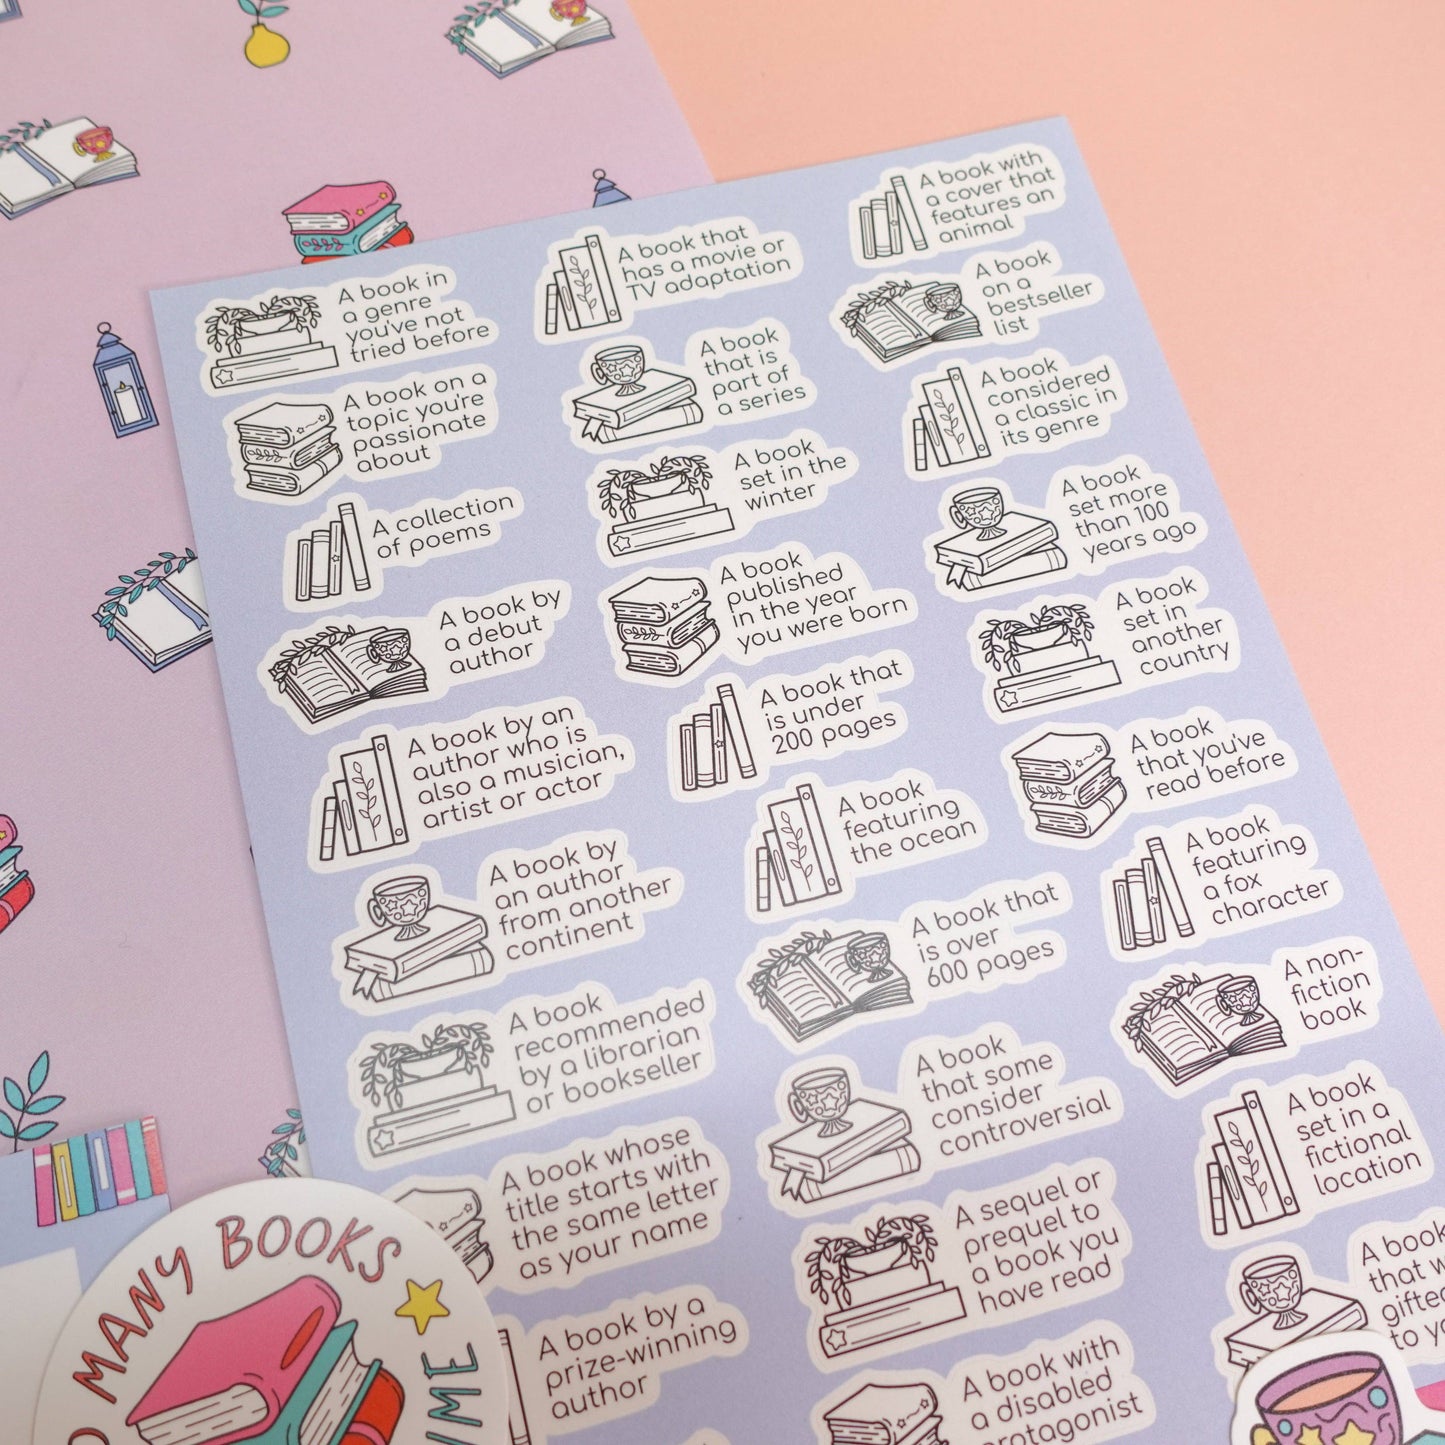 A book in
a genre
you've not
tried before
A book on a
topic you're
passionate
about
A collection
of poems
A book by
a debut
author
A book by an
author who is
also a musician,
artist or actor
A book by
an author
from another
continent
A book
recommended
by a librarian
or bookseller
A book whose
title starts with
the same letter
as your name
A book by a
prize-winning
author
A book that
has a movie or
TV adaptation
A book
that is
part of
a series
A book
set in the
winter
A book
published
in the year
you were born
A book that
is under
200 pages
A book
featuring
the ocean
A book that
is over
600 pages
A book
that some
consider
controversial
A sequel or
prequel to
a book you
have read
A book with
a disabled
protagonist
A book with
a cover that
features an
animal
A book
on a
bestseller
list
A book
considered
a classic in
its genre
A book
set more
than 100
years ago
A book
set in
another
country
A book
that you've
read before
A book
featuring
a fox
character
A non-
fiction
book
A book
set in a
fictional
location
A book
that
gifted
to
MANY BOOKS